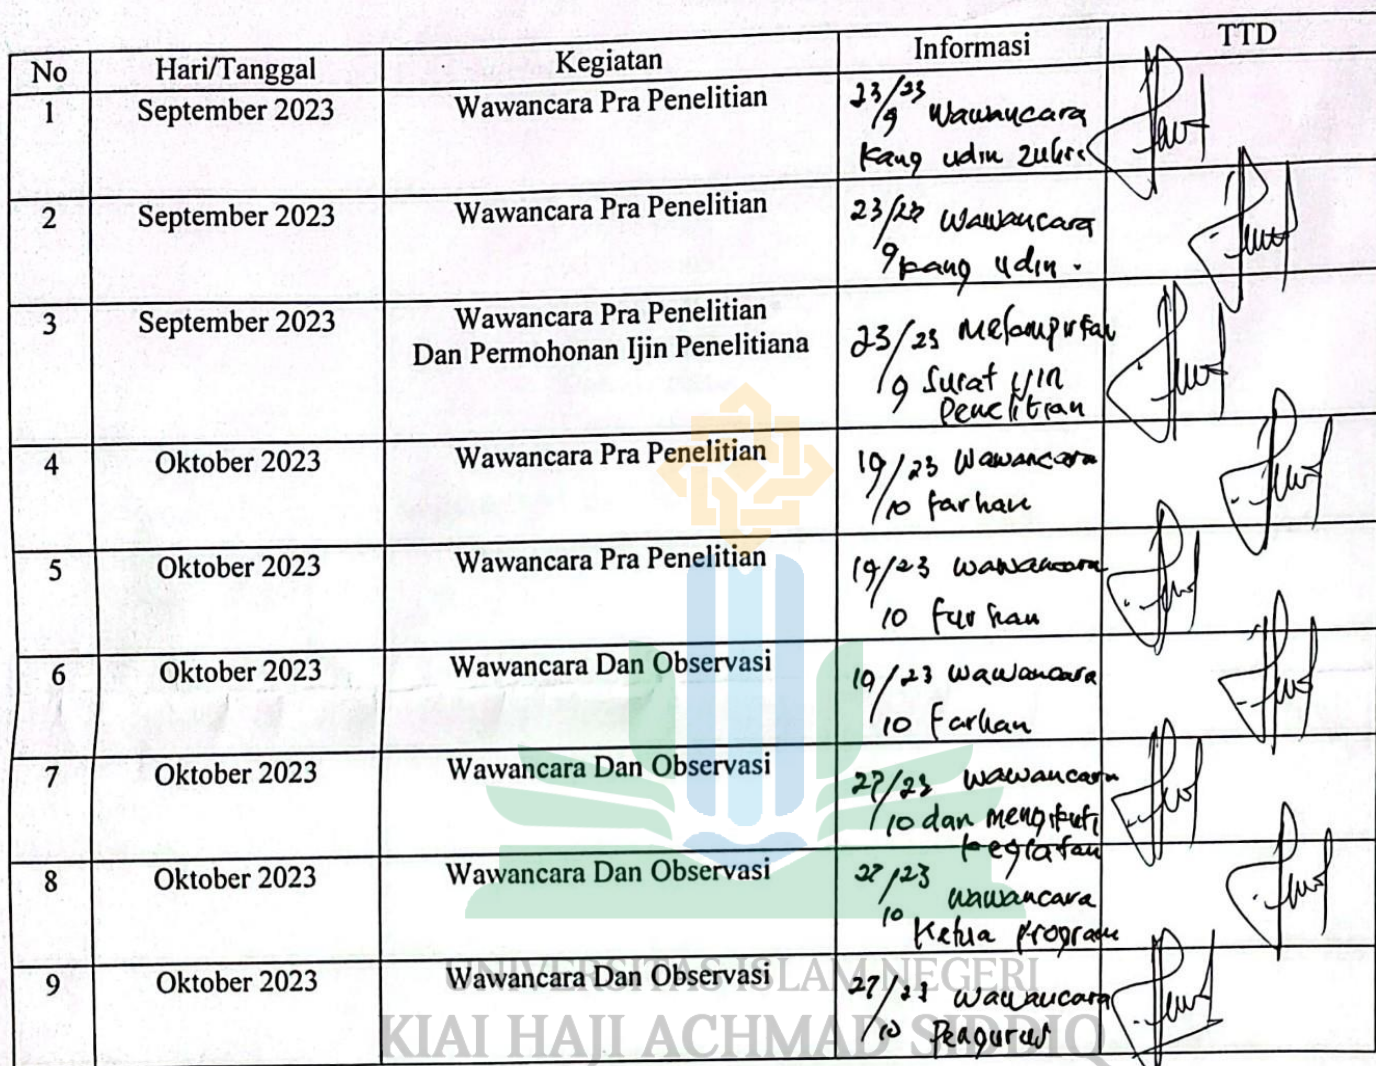 No Hari/Tanggal Kegiatan Informasi TTD
1 September 2023 Wawancara Pra Penelitian 23/23
9 Wawancara
Kang udin zuhri
2 September 2023 Wawancara Pra Penelitian 23/23 Wawancara
9 Kang udin .
3 September 2023 Wawancara Pra Penelitian
Dan Permohonan Ijin Penelitiana 23/23
9 Surat ijin
Penelitian
4 Oktober 2023 Wawancara Pra Penelitian 19/23 Wawancara
10 farhan
5 Oktober 2023 Wawancara Pra Penelitian 19/23 wawancara
10 farhan
6 Oktober 2023 Wawancara Dan Observasi 19/23 wawancara
10 farhan
7 Oktober 2023 Wawancara Dan Observasi 27/23 wawancara
10 dan mengikuti
kegiatan
8 Oktober 2023 Wawancara Dan Observasi 27/23 wawancara
10 Ketua program
9 Oktober 2023 Wawancara Dan Observasi 27/23 wawancara
10 Pengurus
UNIVERSITAS ISLAM NEGERI
KIAI HAJI ACHMAD SIDDIQ